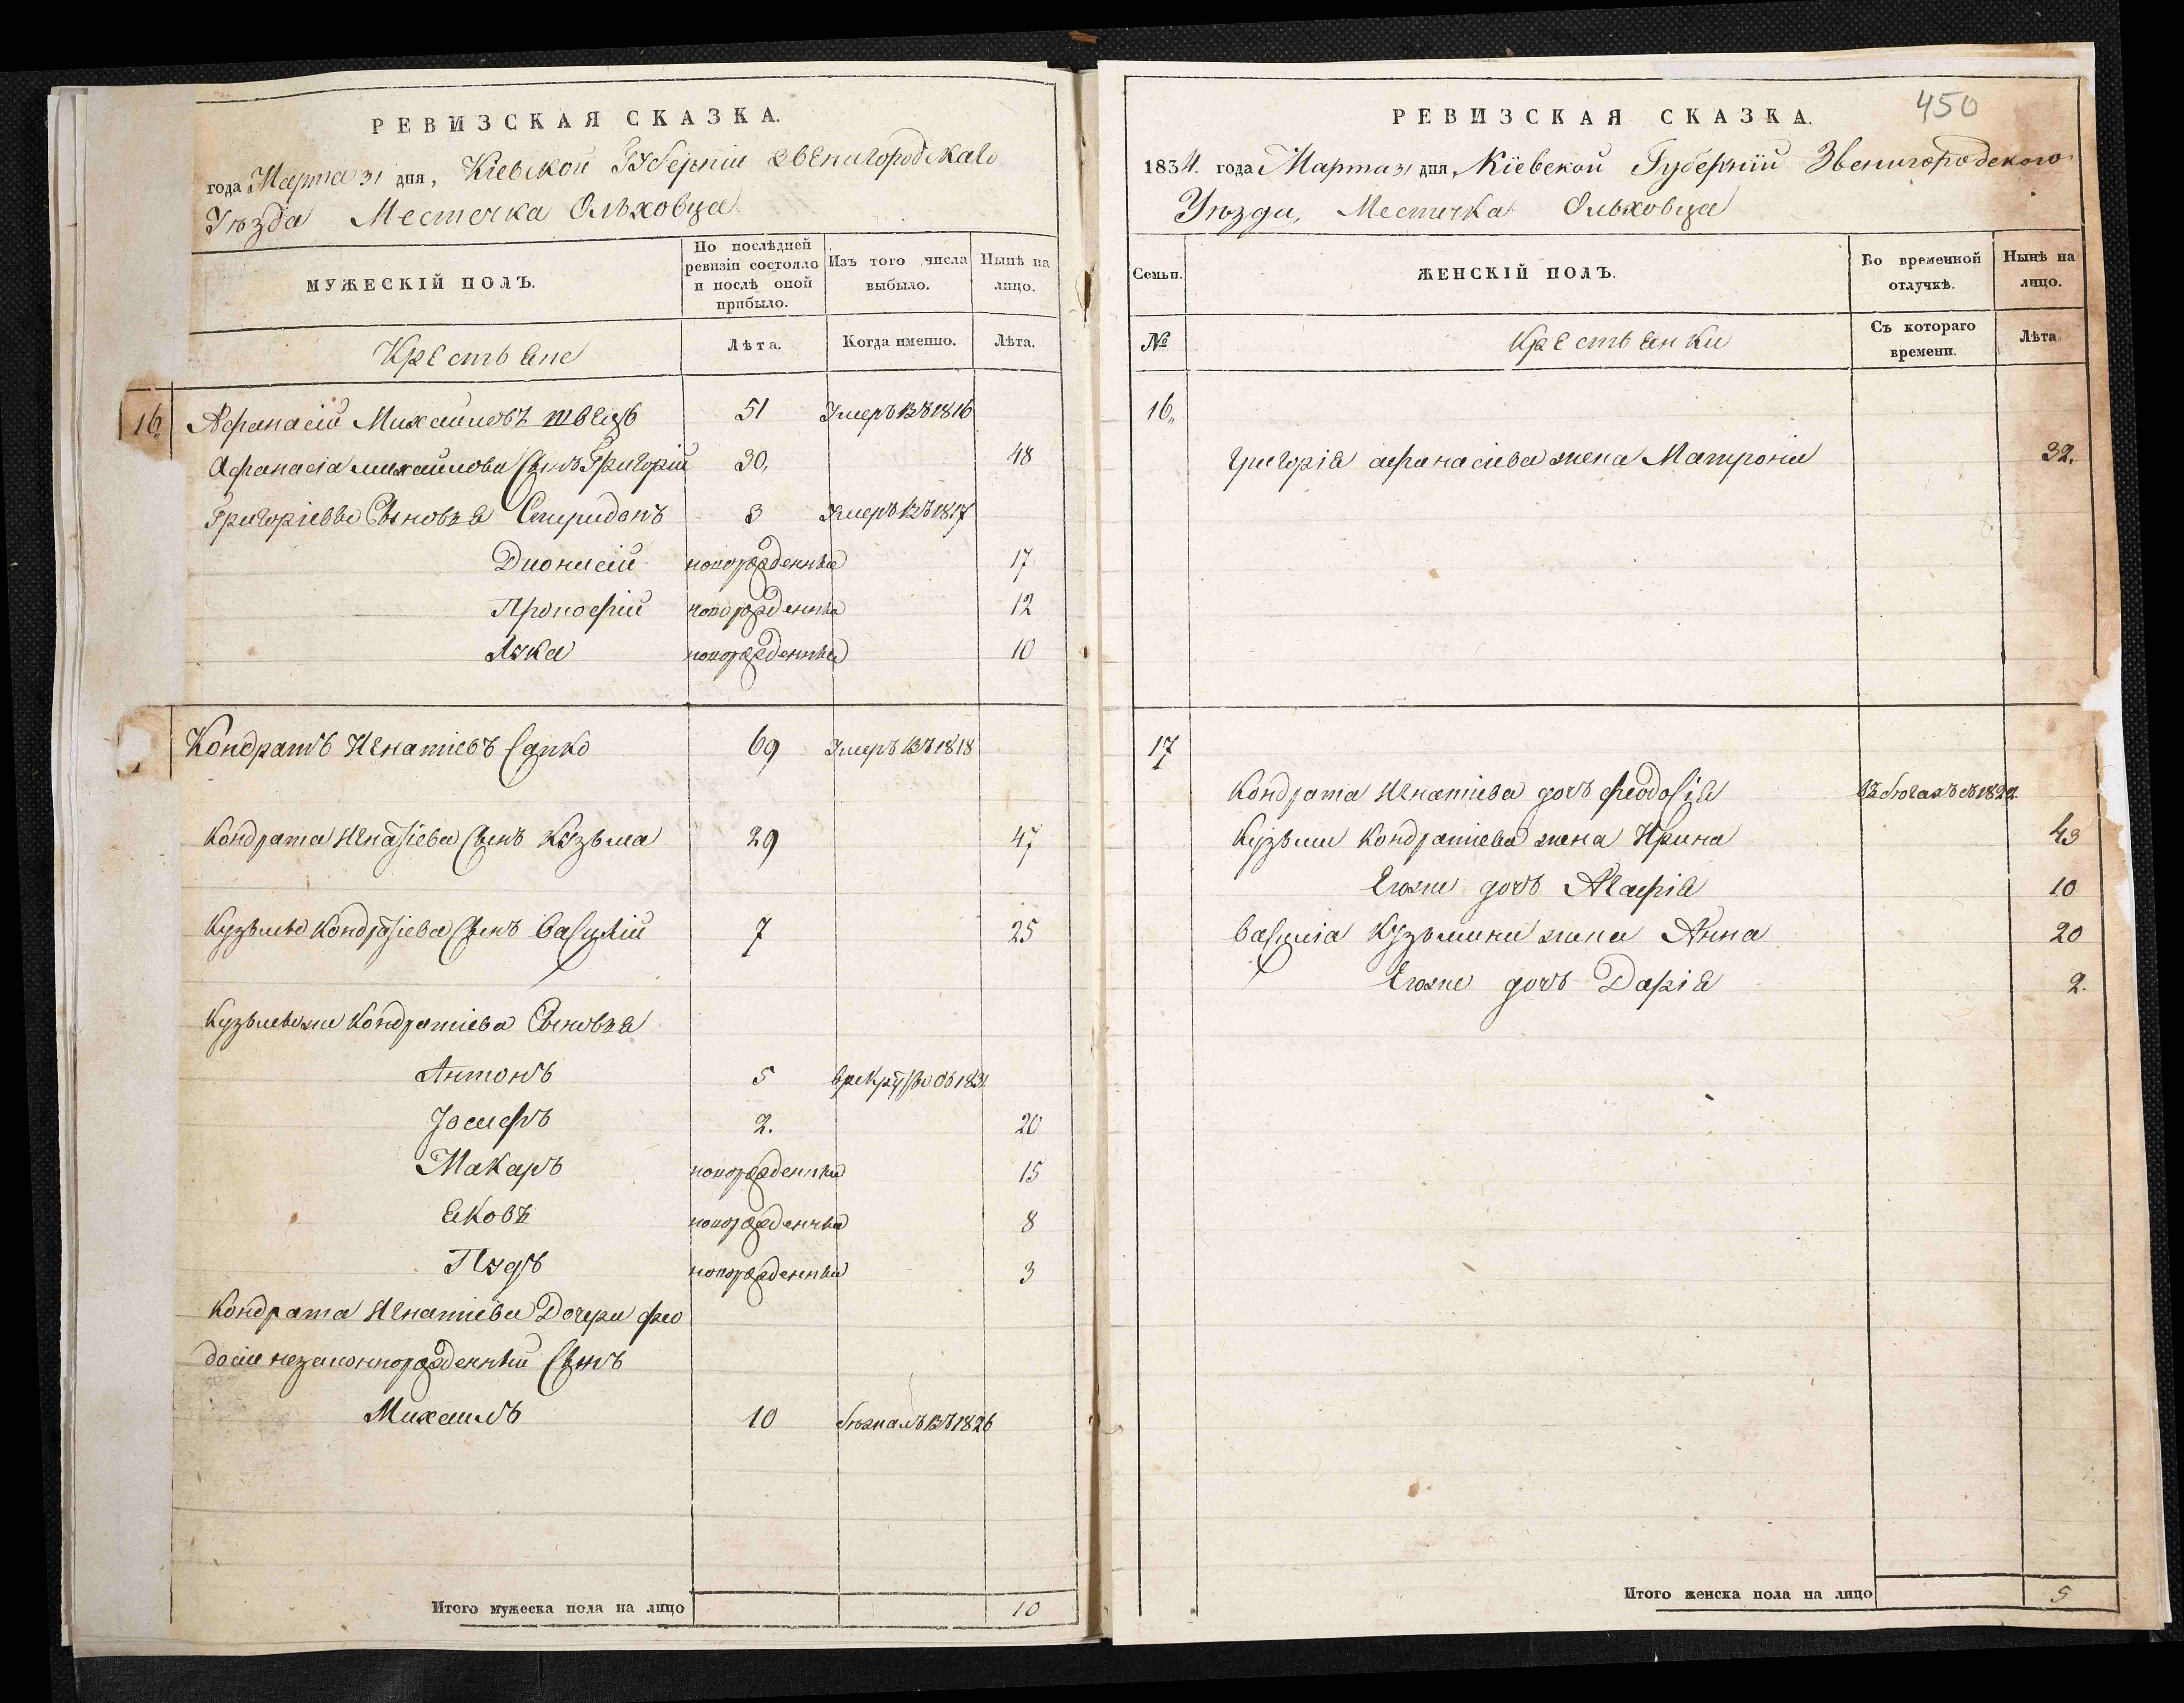 РЕВИЗСКАЯ СКАЗКА.
года Марта 31 дня, Кіевской Губерніи Звенигородскаго
Уѣзда Местечка Ольховца
МУЖЕСКІЙ ПОЛЪ.
По послѣдней ревизіи состояло и послѣ оной прибыло.
Изъ того числа выбыло.
Нынѣ на лицо.
Крестьяне
Лѣта.
Когда именно.
Лѣта.
16. Афанасій Михайловъ Швецъ 51 Умеръ въ 1816
Афанасія михайлова Сынъ Григорій 30. 48
Григоріевы Сыновья Спиридонъ 3 Умеръ въ 1817
Дионисій новорожденный 17
Прокофий новорожденный 12
Лука новорожденный 10
Кондратъ Игнатіевъ Сапко 69 Умеръ въ 1818
Кондрата Игнатіева Сынъ Кузьма 29 47
Кузьмы Кондратіева Сынъ Василій 7 25
Кузьмы же Кондратіева Сыновья
Антонъ 5 врекруты въ 1831
Іосифъ 2. 20
Макаръ новорожденный 15
Яковъ новорожденный 8
Пудъ новорожденный 3
Кондрата Игнатіева Дочери фео
досіи незаконнорожденный Сынъ
Михаилъ 10 бѣжалъ въ 1826
Итого мужеска пола на лицо 10
450
РЕВИЗСКАЯ СКАЗКА.
1834. года Марта 31 дня, Кіевской Губерніи Звенигородского
Уѣзда, Местечка Ольховца
Семьи.
ЖЕНСКІЙ ПОЛЪ.
Во временной отлучкѣ.
Нынѣ на лицо.
№
Крестьянки
Съ котораго времени.
Лѣта
16.
Григорія афанасіева жена Матрона 32.
17
Кондрата Игнатіева дочь феодосія въ бѣгахъ съ 1822.
Кузьмы Кондратіева жена Ирина 43
Егоже дочь Агафія 10
Василія Кузьмина жена Анна 20
Егоже дочь Дарія 2.
Итого женска пола на лицо 5